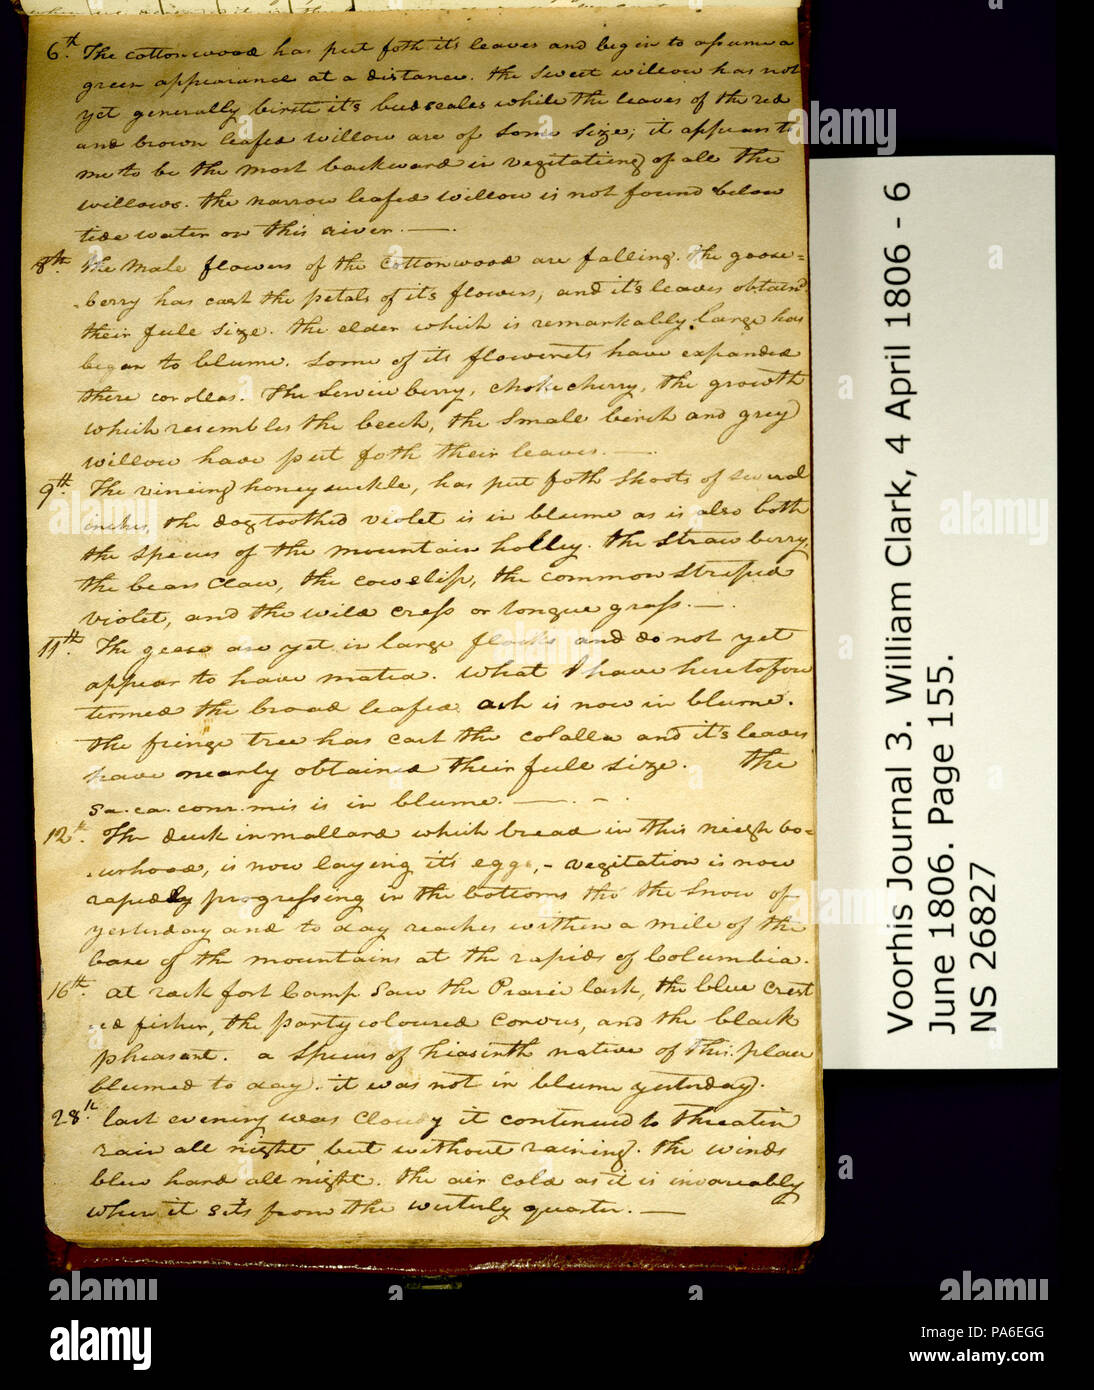 6th The Cottonwood has put foth it's leaves and begin to assume a
green appearance at a distance. the Sweet willow has not
yet generally birste it's budscales while the leaves of the red
and brown leafed willow are of Some Size; it appears to
me to be the most backward in vegitateing of all the
willows. the narrow leafed willow is not found below
tide water on this river. —
8th. the Male flowers of the Cottonwood are falling. the goose=
=berry has cast the petals of it's flowers, and it's leaves obtaind
their full size. the elder which is remarkably large has
began to blume. Some of its flowerets have expanded
there corollas. the Servicuberry, chokecherry, the growth
which resembles the beech, the Small birch and grey
willow have put foth their leaves. —.
9th. The vineing honeysuckle, has put foth Shoots of Several
inches, the dogtoothed violet is in blume as is also both
the Species of the mountain holley. the Strawberry,
the bears Claw, the cowslip, the common Striped
violet, and the wild Cress or tongue grass. —.
11th. The geese are yet in large flocks and do not yet
appear to have mated. What I have heretofore
termed the broad leafed ash is now in blume.
the fringe tree has cast the colalla and it's leaves
have nearly obtained their full size. the
Sa.ca.com.mis is in blume. —. -.
12th. The duck inmallard which breed in this neigh bo=
=urhood, is now laying it's eggs, - vegitation is now
rapidly progressing in the bottoms tho' the Snow of
yesterday and to day reaches within a mile of the
base of the mountains at the rapids of Columbia.
16th. at rock fort Camp Saw the Prarie lark, the blue Crest
ed fisher, the partycoloured Corvus, and the black
pheasant. a Species of hiasinth native of this place
blumed to day. it was not in blume yesterday.
28th. last evening was Cloudy it continued to threatin
rain all night, but without raining. the winds
blew hard all night. the air Cold as it is invareably
when it Sets from the westerly quarter. —
Voorhis Journal 3. William Clark, 4 April 1806 - 6
June 1806. Page 155.
NS 26827
alamy
Image ID: PA6EGG
www.alamy.com